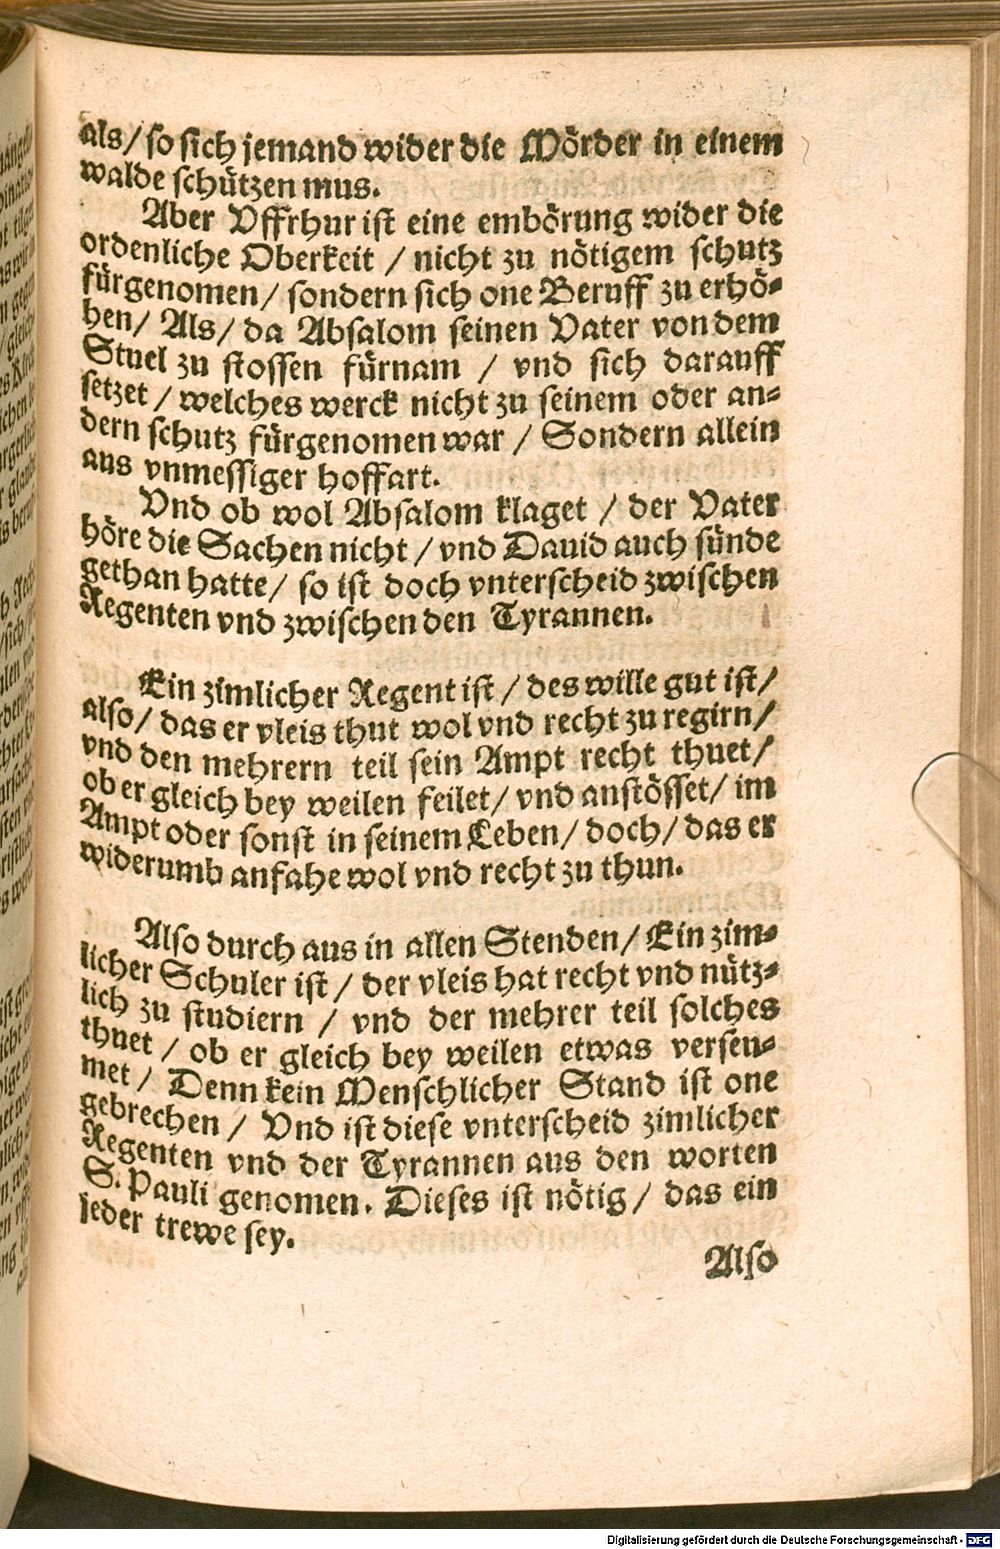 als/ so sich jemand wider die Mörder in einem
walde schützen mus.
Aber Vffrhur ist eine embörung wider die
ordenliche Oberkeit / nicht zu nötigem schutz
fürgenomen/ sondern sich one Beruff zu erhö-
hen/ Als/ da Absalom seinen Vater von dem
Stuel zu stossen fürnam / vnd sich darauff
setzet / welches werck nicht zu seinem oder an-
dern schutz fürgenomen war / Sondern allein
aus vnmessiger hoffart.
Vnd ob wol Absalom klaget / der Vater
höre die Sachen nicht / vnd Dauid auch sünde
gethan hatte/ so ist doch vnterscheid zwischen
Regenten vnd zwischen den Tyrannen.
Ein zimlicher Regent ist / des wille gut ist/
also/ das er vleis thut wol vnd recht zu regirn/
vnd den mehrern teil sein Ampt recht thuet/
ob er gleich bey weilen feilet/ vnd anstösset/ im
Ampt oder sonst in seinem Leben/ doch/ das er
widerumb anfahe wol vnd recht zu thun.
Also durch aus in allen Stenden/ Ein zim-
licher Schuler ist / der vleis hat recht vnd nütz-
lich zu studiern / vnd der mehrer teil solches
thuet / ob er gleich bey weilen etwas versen-
met / Denn kein Menschlicher Stand ist one
gebrechen / Vnd ist diese vnterscheid zimlicher
Regenten vnd der Tyrannen aus den worten
S. Pauli genomen. Dieses ist nötig/ das ein
jeder trewe sey.
Also
Digitalisierung gefördert durch die Deutsche Forschungsgemeinschaft - DFG